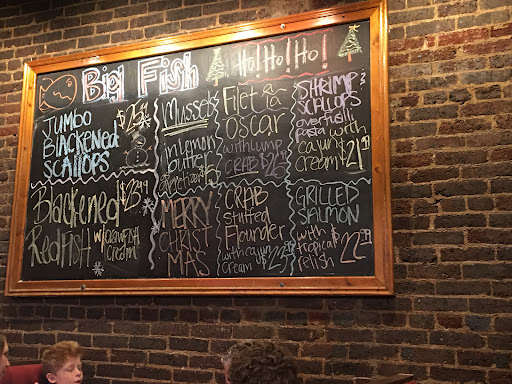 Big Fish
Ho! Ho! Ho!
JUMBO
BLACKENED
SCALLOPS
Mussels
in lemon
butter
Filet a la
oscar
with lump
CRAB
SHRIMP &
SCALLOPS
over fusilli
pasta with
cayun
cream $21.99
Blackened
RedFish w/crawfish
cream
$23.99
MERRY
CHRIST
MAS
CRAB
stuffed
Flounder
with cayun
cream
GRILLED
SALMON
with
tropical
relish
$22.99